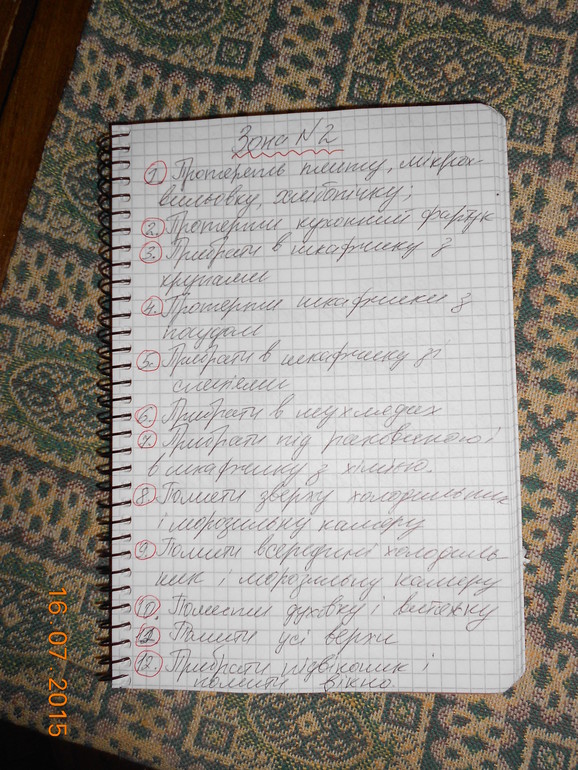 Зона №2
1. Протерть плиту, мікрох-
вильовку, хлібопічку;
2. Протерти кухонний фартук
3. Прибрати в шкафчику з
крупами
4. Протерти шкафчики з
посудом
5. Прибрати в шкафчику зі
спеціями
6. Прибрати в шухлядах
7. Прибрати під раковиною і
в шкафчику з хімією.
8. Помити зверху холодильник
і морозильну камеру
9. Помити всередині холодиль-
ник і морозильну камеру
10. Помити духовку і витяжку
11. Помити усі верхи
12. Прибрати підвіконник і
помити вікно.
16.07.2015